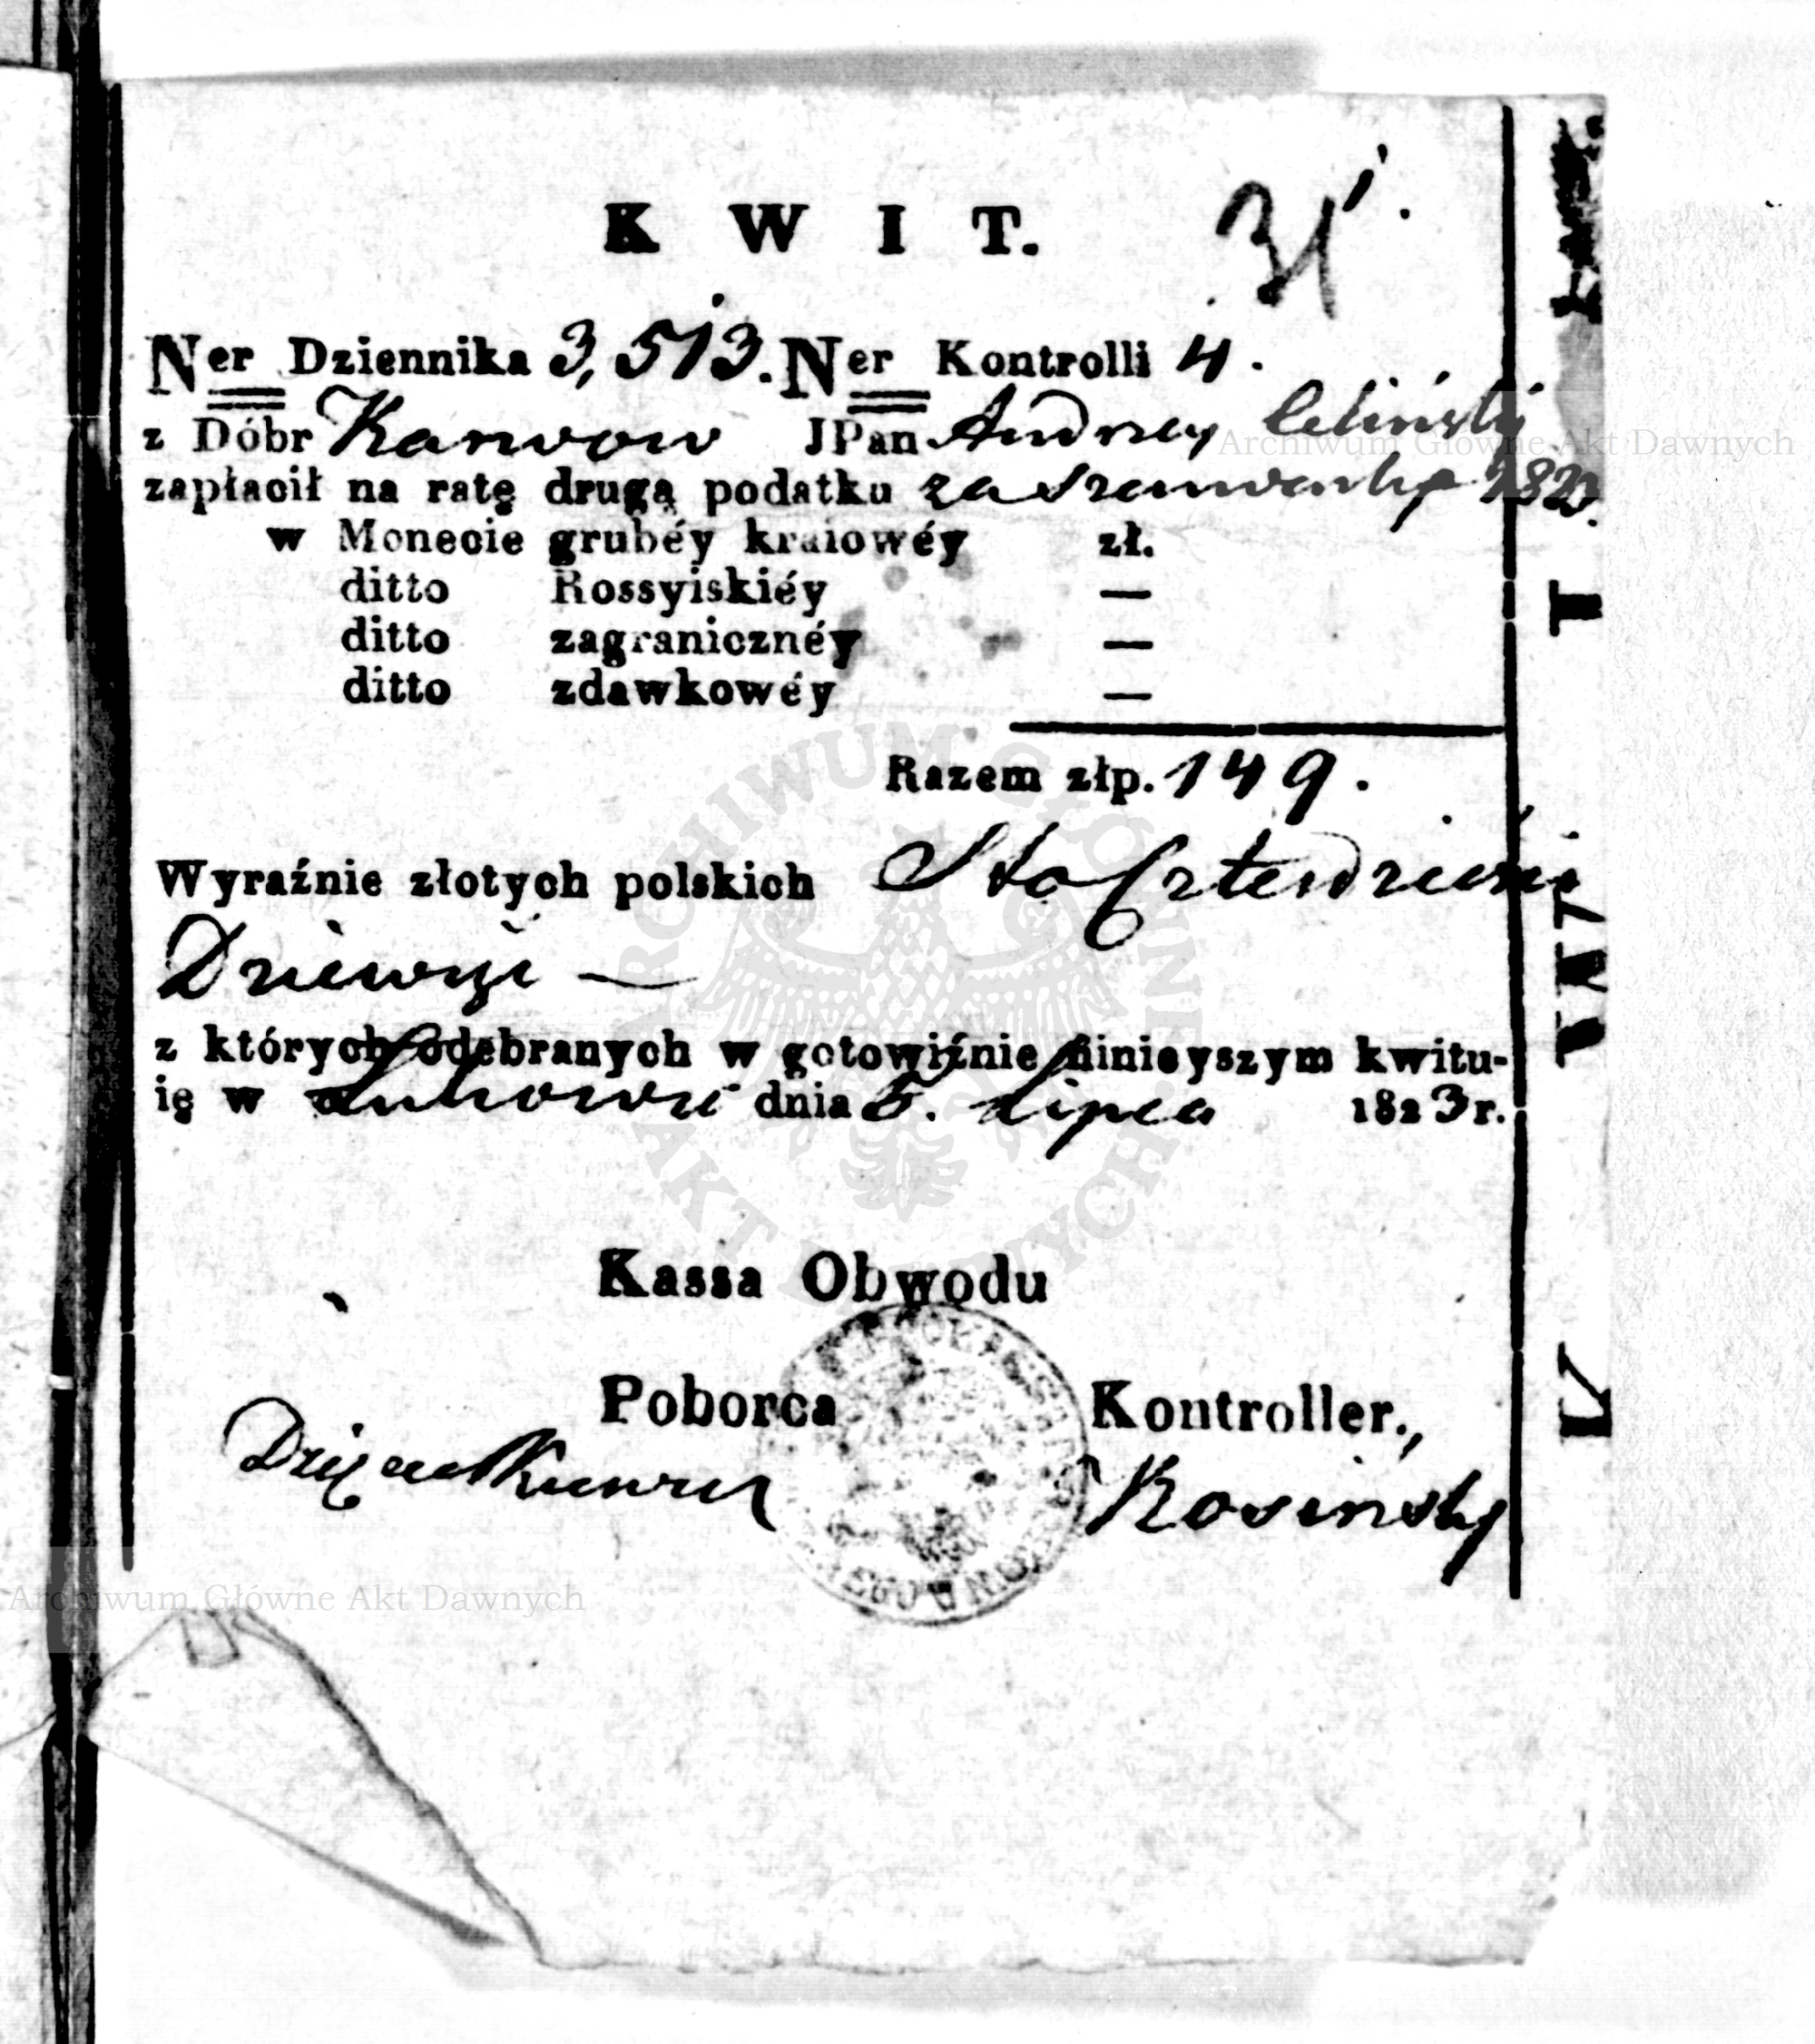 K W I T.
31.
Ner Dziennika 3,513. Ner Kontrolli 4.
z Dóbr Karwow JPan Andrzey Celiński
zapłacił na ratę drugą podatku za szarwarkę 1823.
w Monecie grubéy kraiowéy zł.
ditto Rossyiskiéy —
ditto zagranicznéy —
ditto zdawkowéy —
Razem złp. 149.
Wyraźnie złotych polskich Sto Czterdzieści
Dziewięć —
z których odebranych w gotowiźnie ninieyszym kwitu-
ię w Łukowie dnia 5. Lipca 1823 r.
Kassa Obwodu
Poborca Kontroller.,
Kosiński
K W I T.
Archiwum Główne Akt Dawnych
Archiwum Główne Akt Dawnych
ARCHIWUM GŁÓWNE AKT DAWNYCH